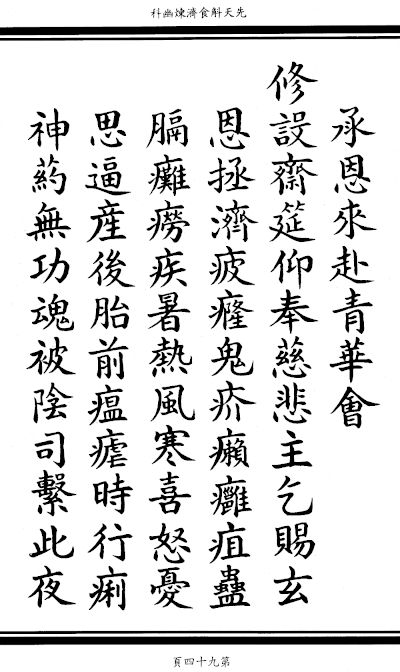 先天斛食濟煉幽科
承恩來赴青華會
修設齋筵仰奉慈悲主乞賜玄
恩拯濟疲癃鬼疥癩癰疽蠱
膈癱癆疾暑熱風寒喜怒憂
思逼産後胎前瘟瘧時行痢
神药無功魂被陰司繫此夜
第九十四頁